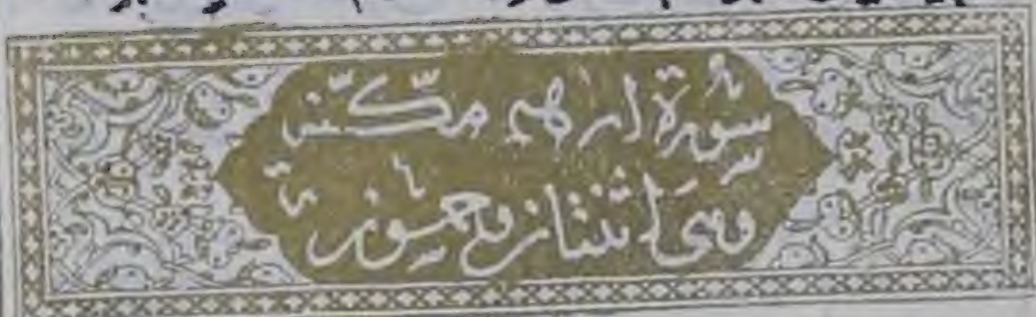 سورة ابرهيم مكية
وهي اثنتان وخمسون آية